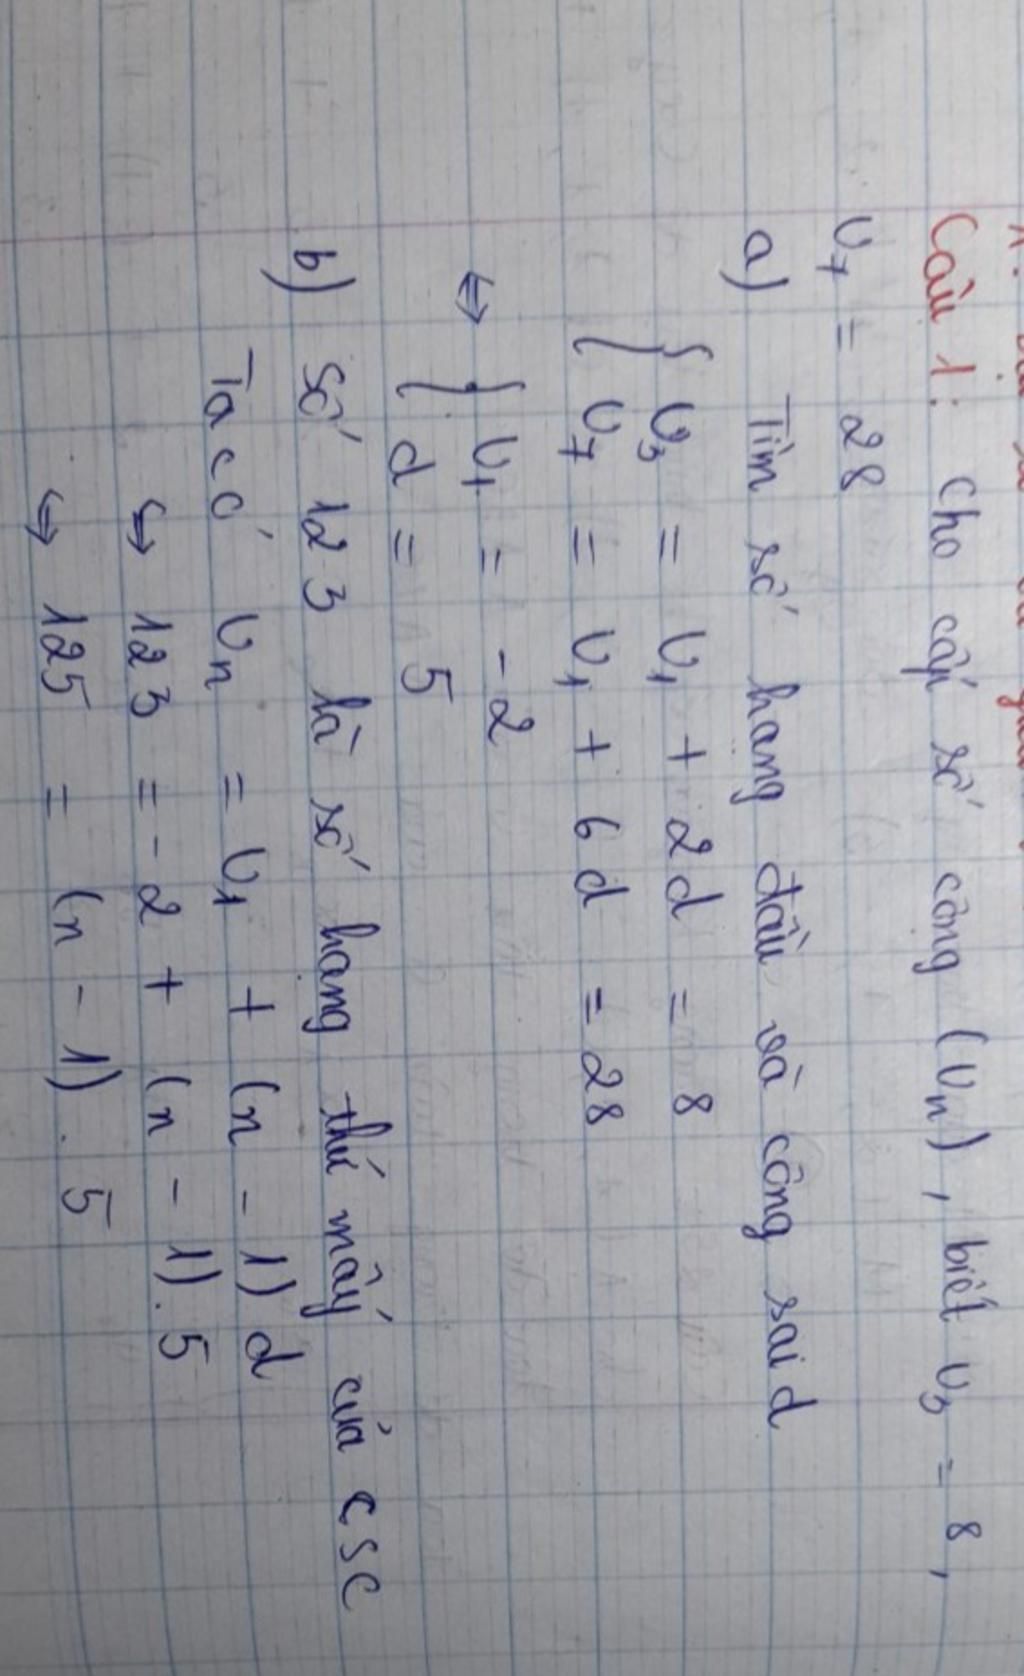 Câu 1: Cho cấp số cộng (Un), biết U3 = 8,
U7 = 28
a) Tìm số hạng đầu và công sai d
{ U3 = U1 + 2d = 8
U7 = U1 + 6d = 28
⇔ { U1 = -2
d = 5
b) Số 123 là số hạng thứ mấy của CSC
Ta có Un = U1 + (n - 1) d
⇔ 123 = -2 + (n - 1). 5
⇔ 125 = (n - 1). 5